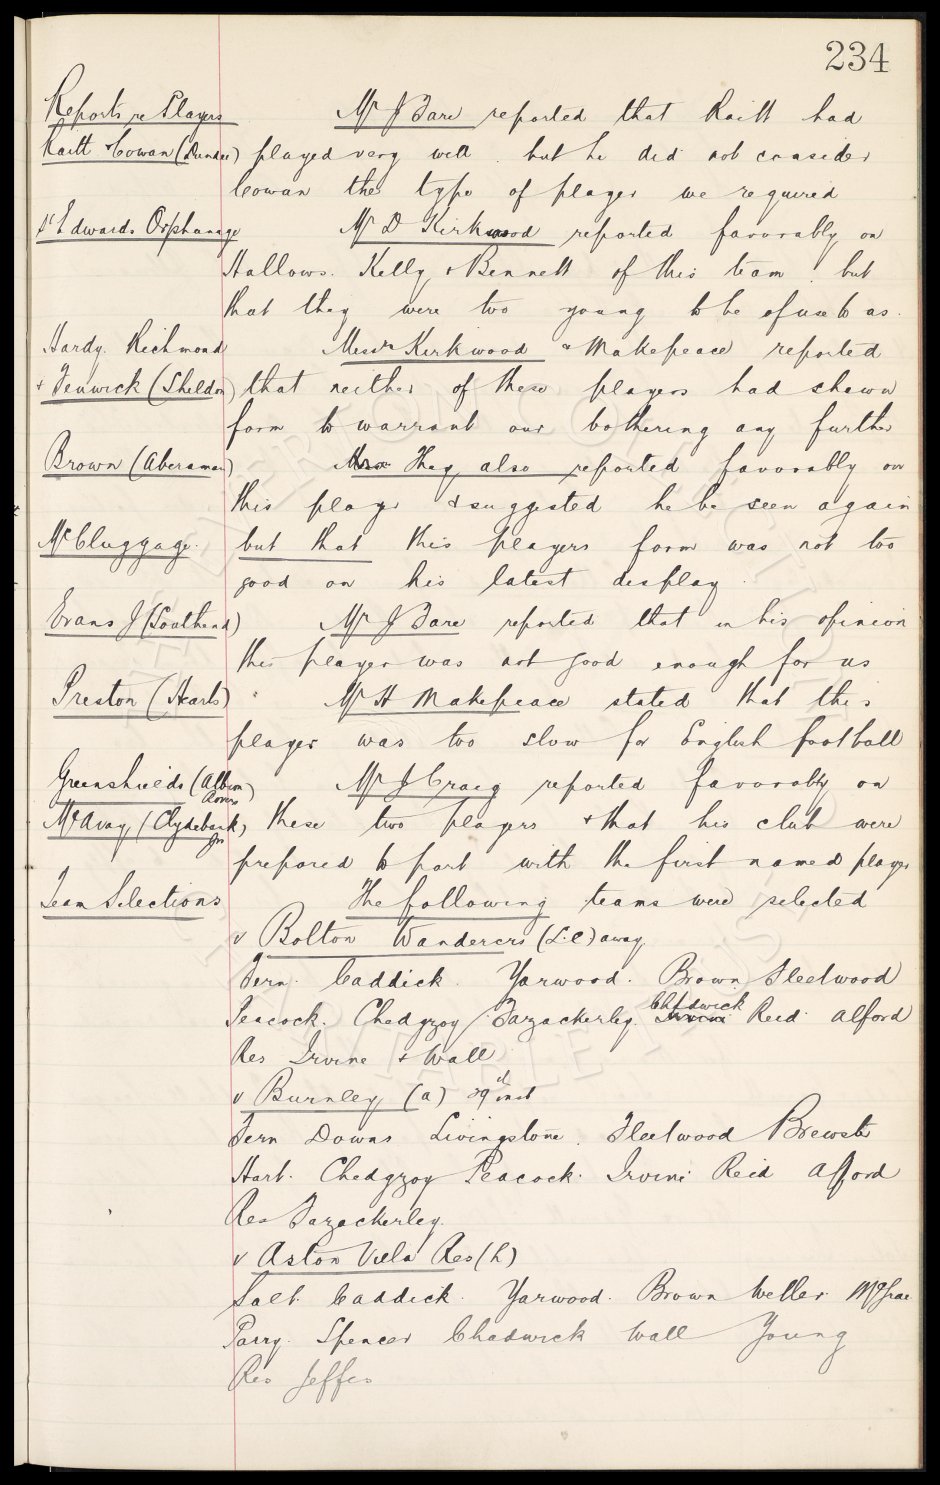 234
Reports re Players
Mr J Bare reported that Raitt had
Raitt & Cowan (Dundee) played very well. but he did not consider
Cowan the type of player we required
St Edwards Orphanage Mr D Kirkwood reported favorably on
Hallows. Kelly & Bennett of this team but
that they were too young to be of use to us.
Hardy. Richmond Messrs Kirkwood & Makepeace reported
& Fenwick (Sheldon) that neither of these players had shewn
form to warrant our bothering any further
Brown (Aberaman) They also reported favorably on
this player & suggested he be seen again
McCluggage. but that this players form was not too
good on his latest display.
Evans J (Southend) Mr J Bare reported that in his opinion
this player was not good enough for us
Preston (Hearts) Mr H Makepeace stated that this
player was too slow for English football
Greenshields (Albion Rovers) Mr J Craig reported favorably on
McAvoy (Clydebank Jrs) these two players & that his club were
prepared to part with the first named player
Team Selections The following teams were selected
v Bolton Wanderers (L.C) away
Fern. Caddick. Yarwood. Brown Fleetwood
Peacock. Chedgzoy Bazackerley. Chadwick Irvine Reid. Alford
Res Irvine & Wall
v Burnley (a) 29th inst
Fern Downs Livingstone. Fleetwood Brewster
Hart. Chedgzoy Peacock. Irvine Reid Alford
Res Bazackerley.
v Aston Villa Res (h)
Salt. Caddick. Yarwood. Brown Weller. McGrae
Parry. Spencer Chadwick Wall Young
Res Jeffes